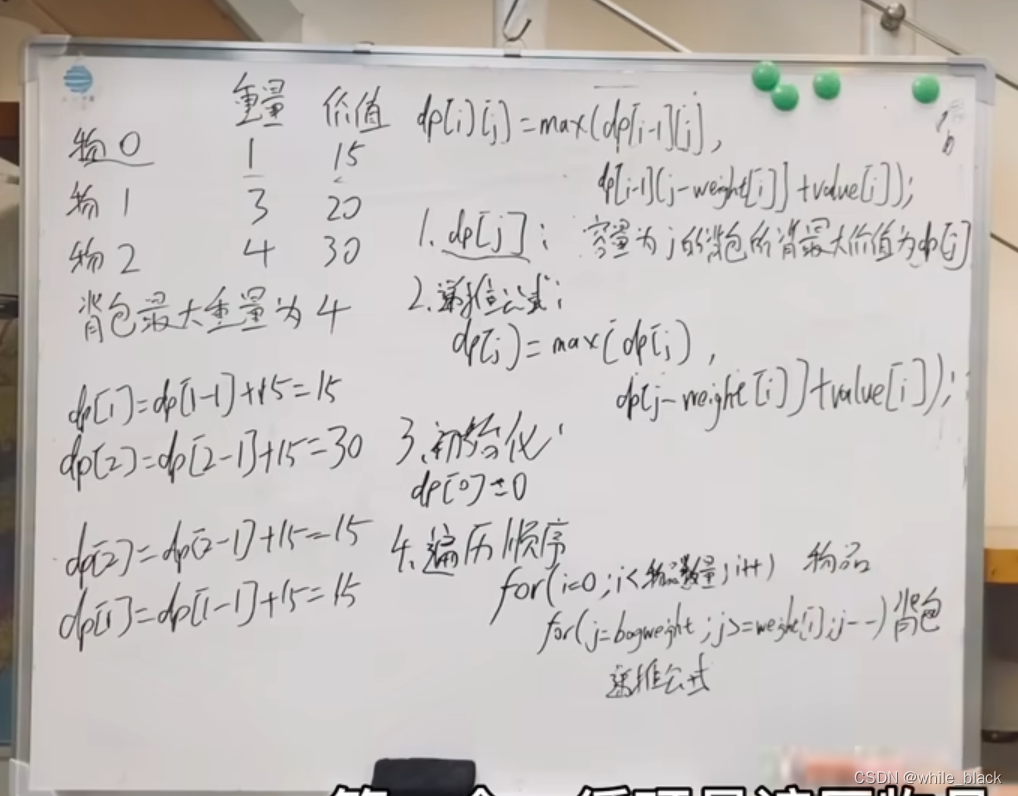 重量 价值
物0 1 15
物1 3 20
物2 4 30
背包最大重量为4
dp[1]=dp[1-1]+15=15
dp[2]=dp[2-1]+15=30
dp[2]=dp[2-1]+15=15
dp[1]=dp[1-1]+15=15
dp[i)(j]=max(dp[i-1][j],
dp[i-1](j-weight[i]]+value[i]);
1.dp[j]: 容量为j的背包所背最大价值为dp[j]
2.递推公式:
dp[j)=max(dp[j),
dp[j-weight[i]]+value[i]);
3.初始化:
dp[0]=0
4.遍历顺序
for(i=0;i<物品数量;i++) 物品
for(j=bagweight;j>=weight[i];j--)背包
递推公式
CSDN @while_black